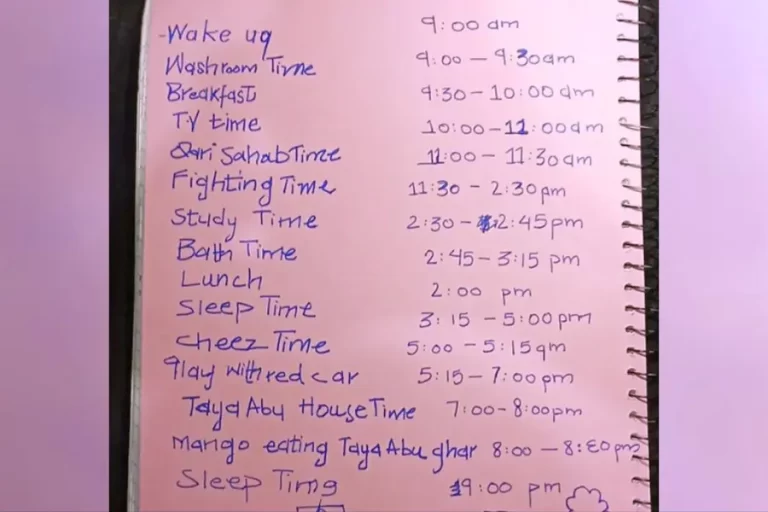 -Wake uq 9:00 am
Washroom Time 9:00 - 9:30am
Breakfast 9:30 - 10:00 am
TV time 10:00-11:00am
Qari Sahab Time 11:00 - 11:30am
Fighting Time 11:30 - 2:30pm
Study Time 2:30 - 2:45pm
Bath Time 2:45 - 3:15 pm
Lunch 2:00 pm
Sleep Time 3:15 - 5:00pm
Cheez Time 5:00 - 5:15qm
Play with red car 5:15 - 7:00pm
Taya Abu House Time 7:00-8:00pm
Mango eating Taya Abu ghar 8:00 - 8:30pm
Sleep Timg 9:00 pm